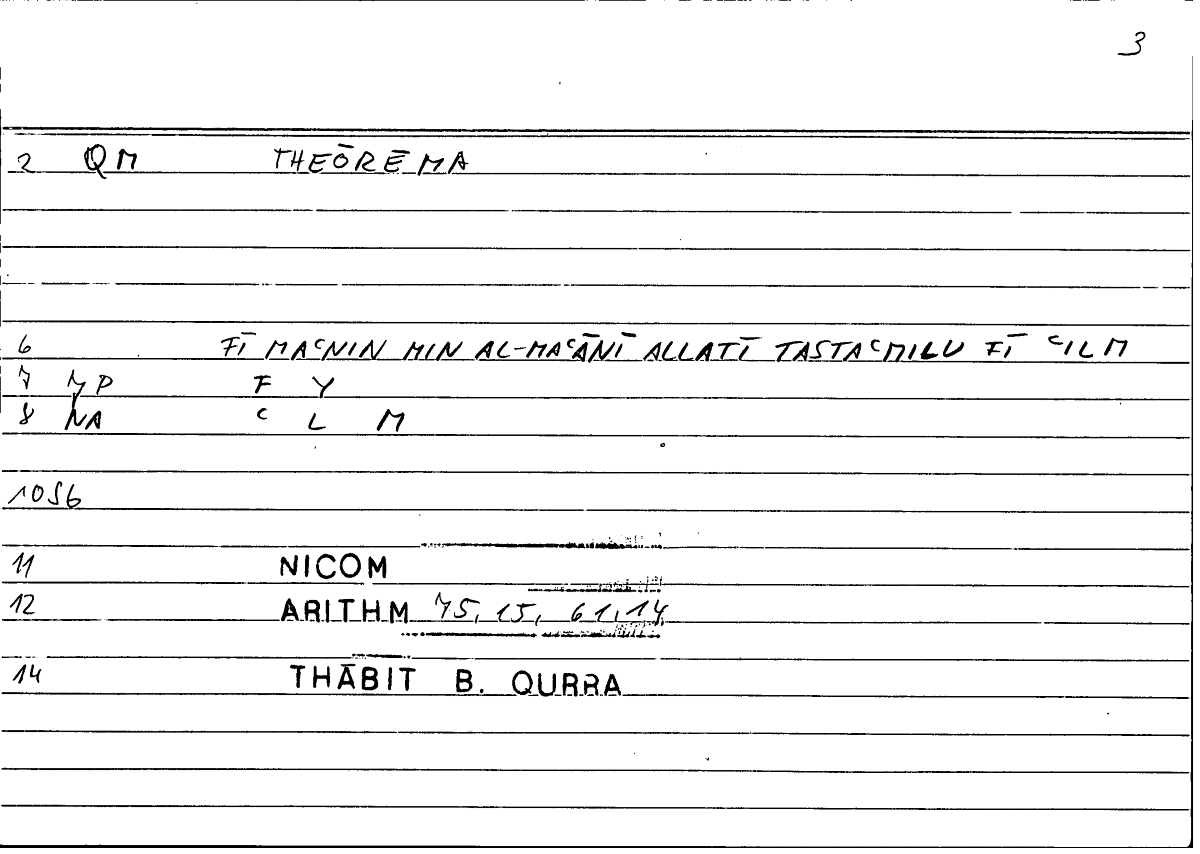 3
2 QM THEŌRĒMA
6 FĪ MAʿNIN MIN AL-MAʿĀNĪ ALLATĪ TASTAʿMILU FĪ ʿILM
7 MP F Y
8 NA ʿ L M
1056
11 NICOM
12 ARITHM 75, 15, 61,14
14 THĀBIT B. QURRA